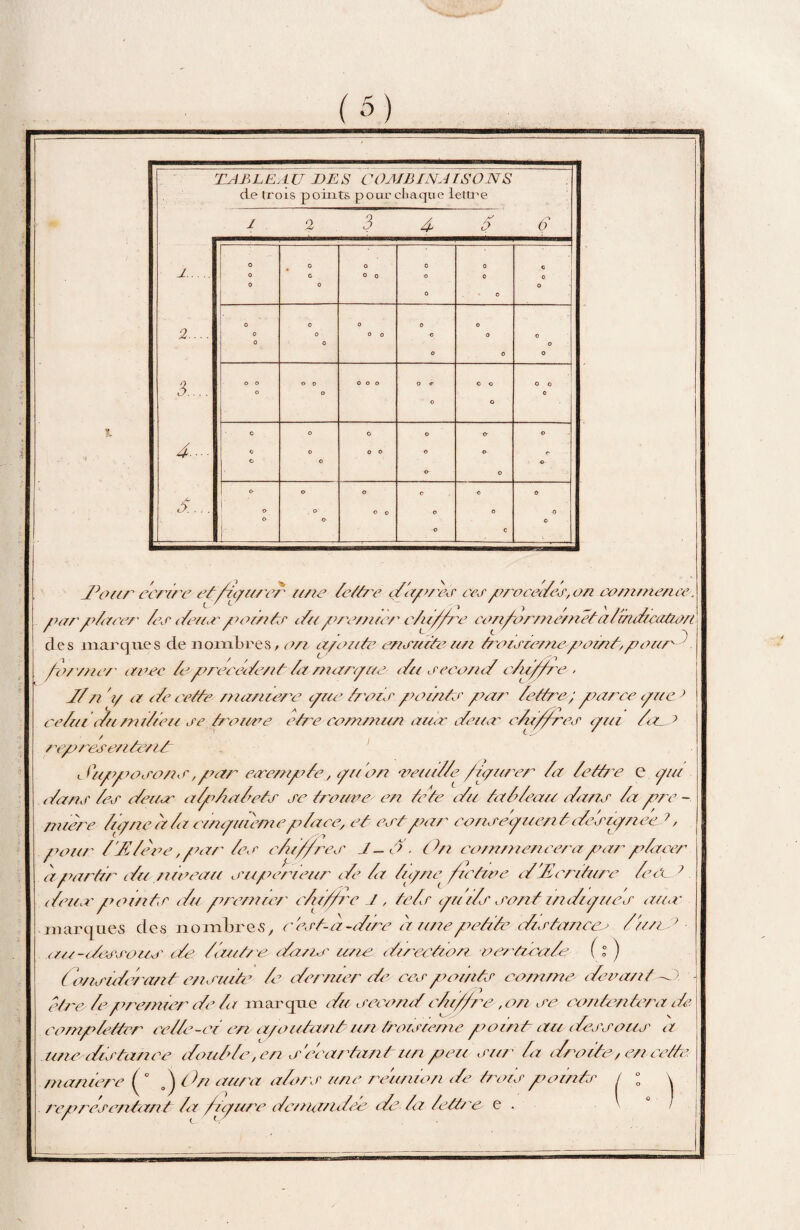 (5)
TABLEAU DES COMBINAISONS
de trois points pour chaque lettre
1 2 3 4 5 6
1....
2....
3....
4....
5....
Pour écrire et figurer une lettre d'après ces procédés, on commence
par placer les deux points du premier chiffre conformémet à l'indication
des marques de nombres, on ajoute ensuite un troisième point, pour
former avec le précédent la marque du second chiffre.
Il n'y a de cette manière que trois points par lettre; parce que
celui du milieu se trouve être commun aux deux chiffres qui la
représentent
Supposons, par exemple, qu'on veuille figurer la lettre e qui
dans les deux alphabets se trouve en tête du tableau dans la pre-
mière ligne à la cinquième place, et est par conséquent désignée,
pour l'Elève, par les chiffres 1_5. On commencera par placer
à partir du niveau supérieur de la ligne fictive d'Ecriture les
deux points du premier chiffre 1, tels qu'ils sont indiqués aux
marques des nombres, c'est-à-dire à une petite distance l'un
au-dessous de l'autre dans une direction verticale (:)
Considérant ensuite le dernier de ces points comme devant
être le premier de la marque du second chiffre, on se contentera de
completter celle-ci en ajoutant un troisième point au dessous à
une distance double, en s'écartant un peu sur la droite, en cette
manière On aura alors une réunion de trois points
représentant la figure demandée de la lettre e.